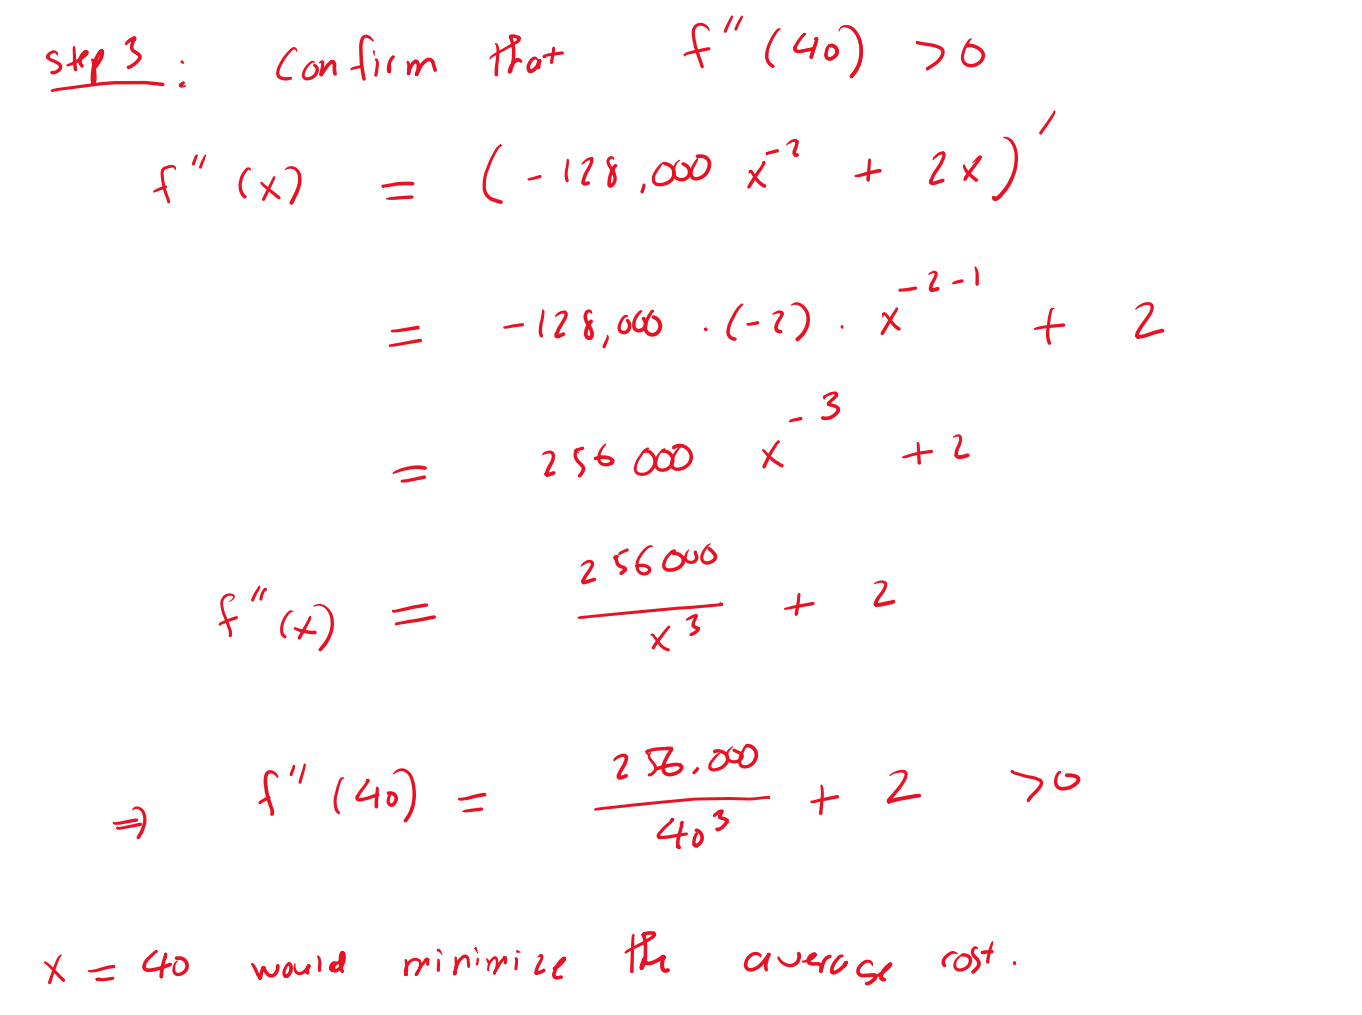 step 3 : Confirm that f''(40) >0
f''(x) = (-128,000 x^-2 + 2x)'
= -128,000 . (-2) . x^-2-1 + 2
= 256000 x^-3 +2
f''(x) = 256000/x^3 + 2
⇒ f''(40) = 256.000/40^3 + 2 >0
x = 40 would minimize the average cost.